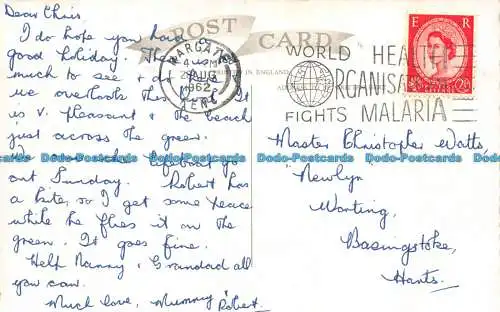 Dear Chris
I do hope you had
good holiday. The
much to see + do
we overlook
is v. pleasant + the beach
just across the green.
We lifeboat go
out Sunday. Robert has
a kite, so I get some peace
while he flies it on the
green. It goes fine.
Help Nanny + Grandad all
you can.
Much love, Mummy + Robert.
POST CARD
PRINTED IN ENGLAND
MARGATE
4 - PM
AUG
1962
KENT
WORLD HEALTH
ORGANISA
FIGHTS MALARIA
E R
Master Christopher Watts,
"Newlyn"
Worting,
Basingstoke,
Hants.
Dodo-Postcards Dodo-Postcards Dodo-Postcards Dodo-Postcards